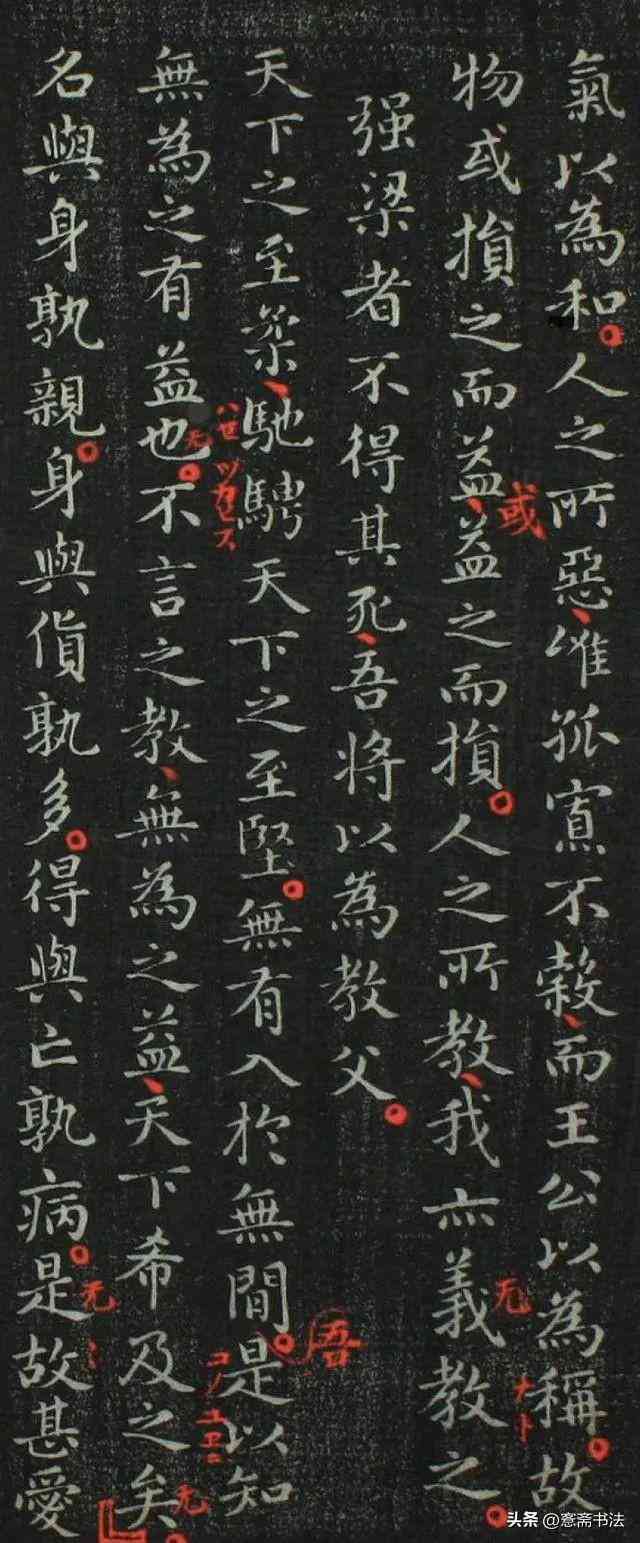 氣以為和人之所惡惟孤寡不穀而王公以為稱故
物或損之而益益之而損人之所教我亦義教之
强梁者不得其死吾將以為教父
天下之至柔馳騁天下之至堅無有入於無間是以知
無為之有益也不言之教無為之益天下希及之矣
名與身孰親身與貨孰多得與亡孰病是故甚愛
或
无
吾
无
无
无
ハセツカセス
头条 @寋斋书法